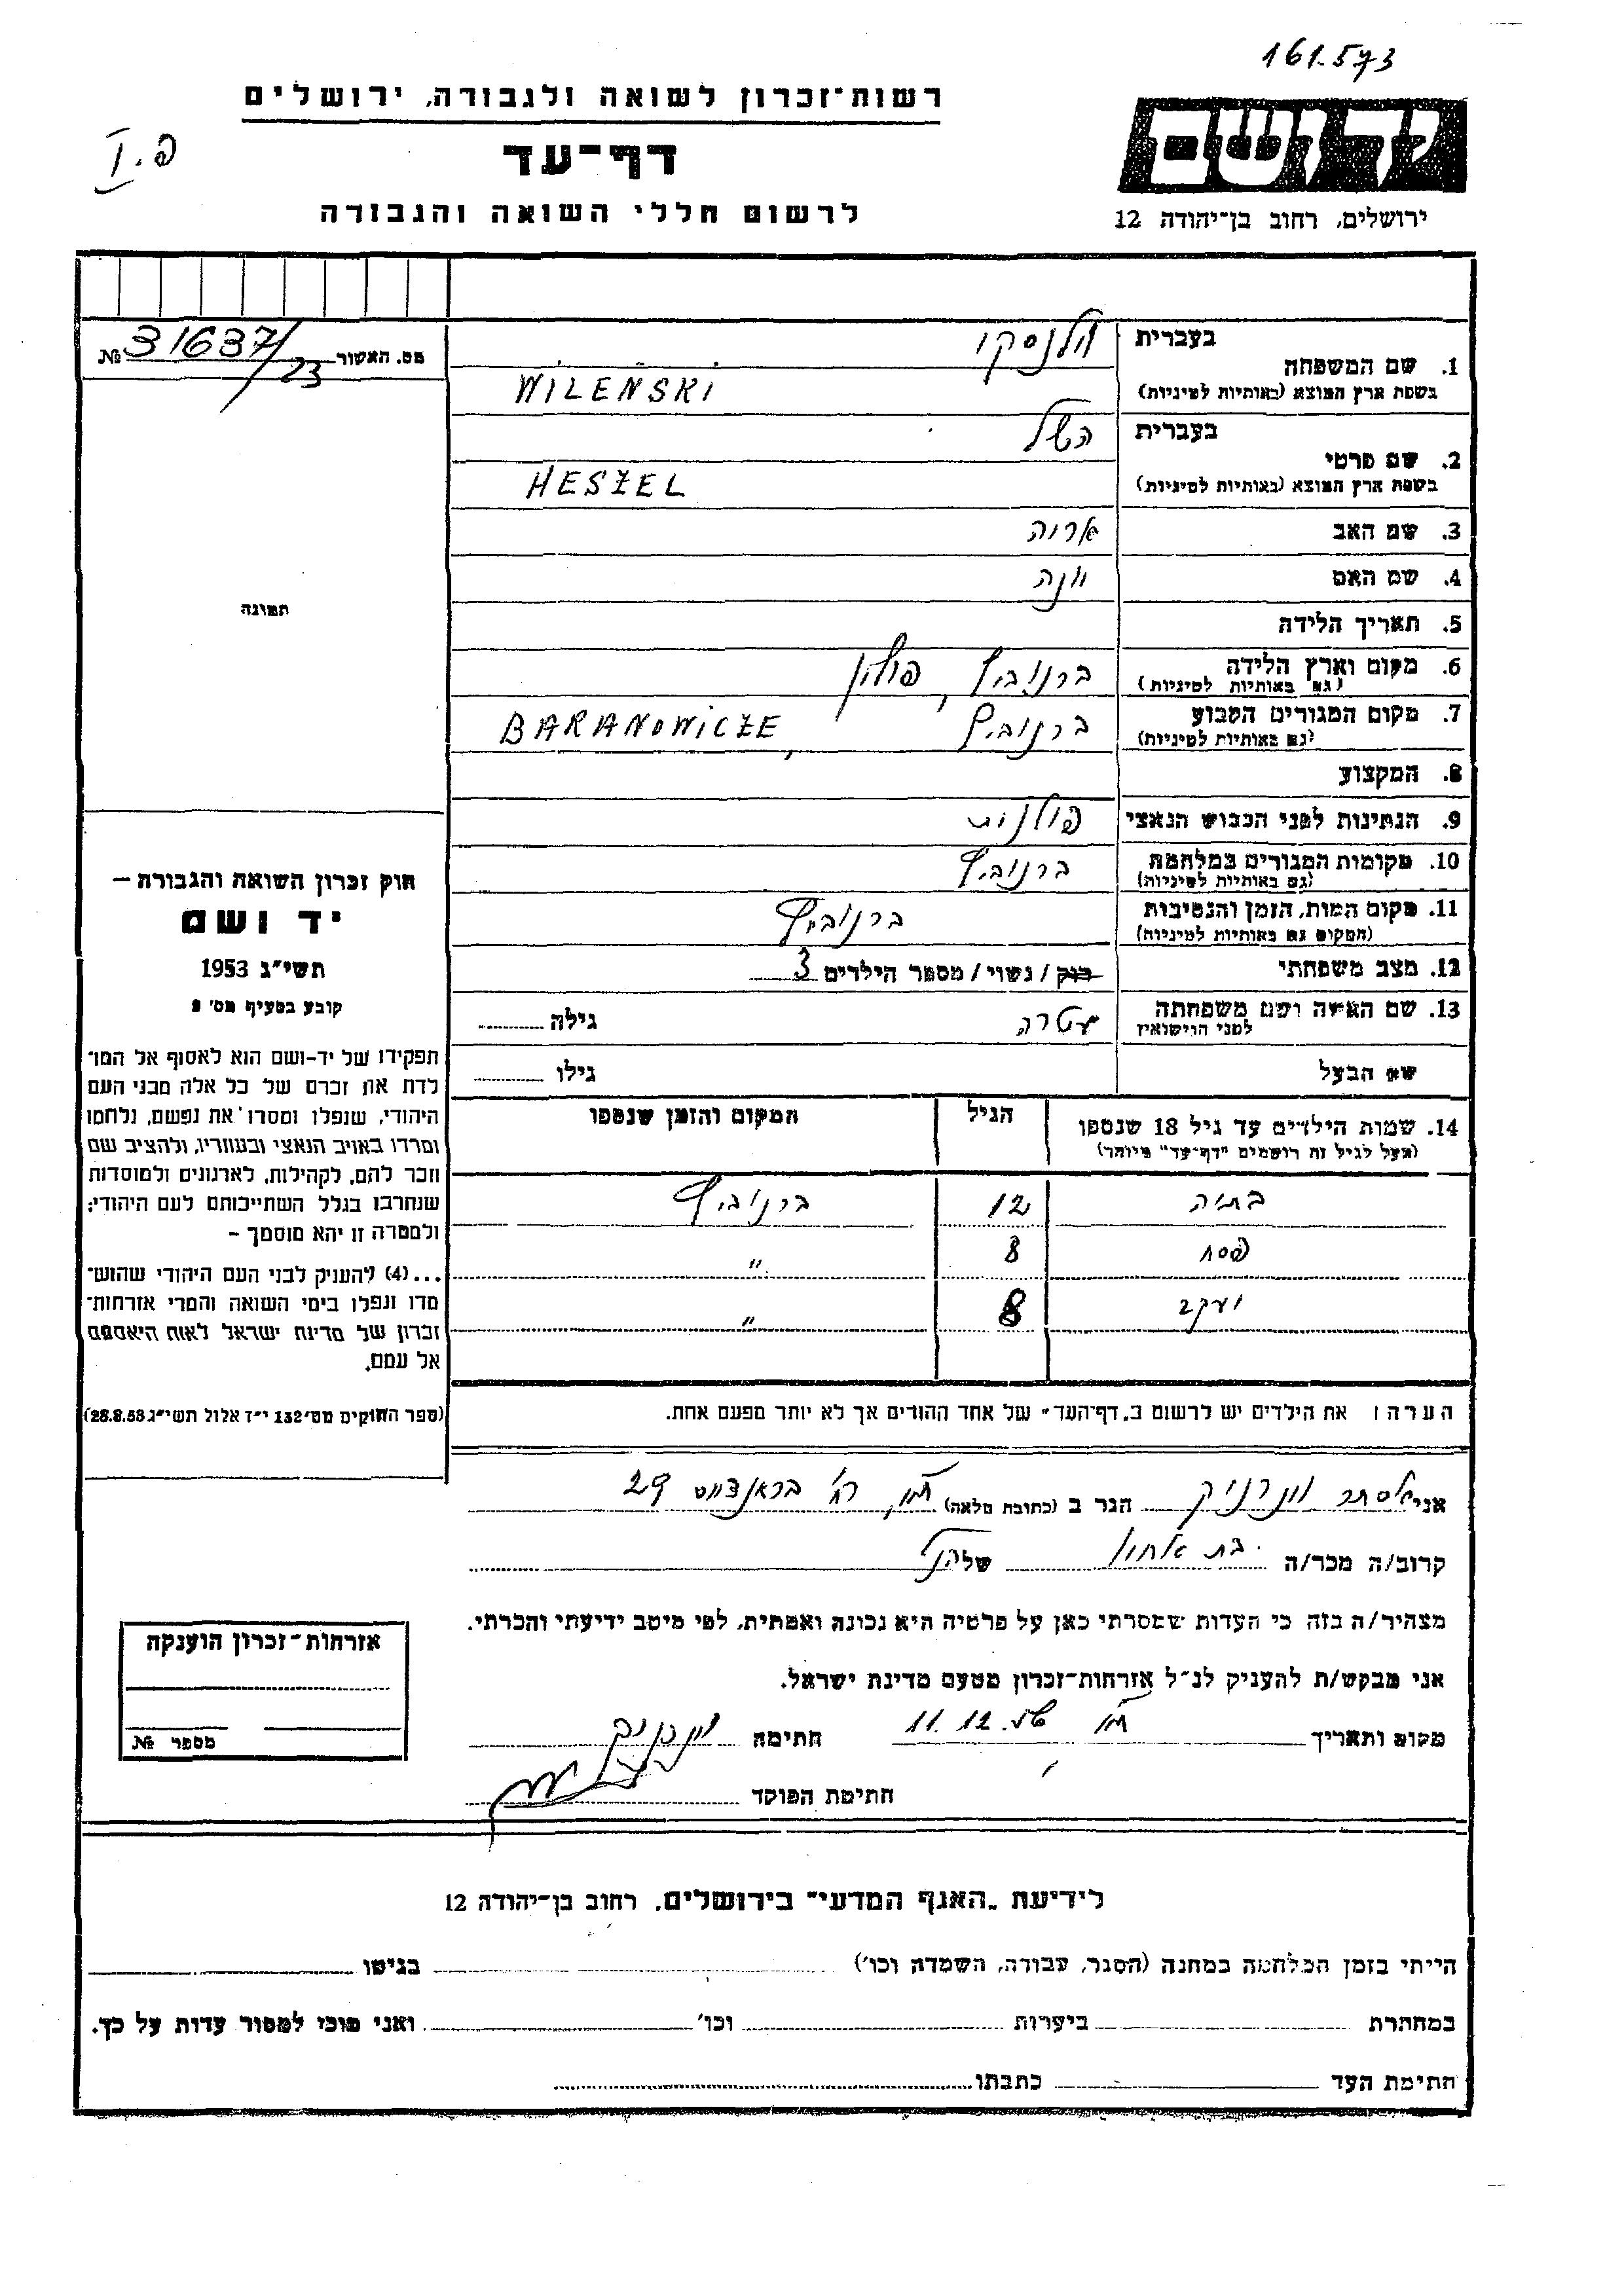 161.573
רשות־זכרון לשואה ולגבורה, ירושלים
דף־עד
לרשום חללי השואה והגבורה
פ. I
יד ושם
ירושלים, רחוב בן־יהודה 12
מס. האשור № 31637/23
1. שם המשפחה
בעברית וילנסקי
בשפת ארץ המוצא (באותיות לטיניות) WILEŃSKI
2. שם פרטי
בעברית השל
בשפת ארץ המוצא (באותיות לטיניות) HESZEL
3. שם האב אריה
4. שם האם יונה
5. תאריך הלידה
6. מקום וארץ הלידה ברנוביץ, פולין
(גם באותיות לטיניות)
7. מקום המגורים הקבוע ברנוביץ, BARANOWICZE
(גם באותיות לטיניות)
8. המקצוע
9. הנתינות לפני הכבוש הנאצי פולנית
10. מקומות המגורים במלחמה ברנוביץ
(גם באותיות לטיניות)
11. מקום המות, הזמן והנסיבות ברנוביץ
(המקום גם באותיות לטיניות)
12. מצב משפחתי רווק / נשוי / מספר הילדים 3
13. שם האשה ושם משפחתה עטרה גילה
לפני הנישואין
שם הבעל גילו
14. שמות הילדים עד גיל 18 שנספו הגיל המקום והזמן שנספו
(מעל לגיל זה רושמים "דף־עד" מיוחד)
בתיה 12 ברנוביץ
פסח 8 "
יעקב 8 "
הערה: את הילדים יש לרשום ב„דף־העד" של אחד ההורים אך לא יותר מפעם אחת.
תמונה
חוק זכרון השואה והגבורה —
יד ושם
תשי"ג 1953
קובע בסעיף מס' 2
תפקידו של יד-ושם הוא לאסוף אל המו־
לדת את זכרם של כל אלה מבני העם
היהודי, שנפלו ומסרו את נפשם, נלחמו
ומרדו באויב הנאצי ובעוזריו, ולהציב שם
וזכר להם, לקהילות, לארגונים ולמוסדות
שנחרבו בגלל השתייכותם לעם היהודי;
ולמטרה זו יהא מוסמך –
...(4) להעניק לבני העם היהודי שהוש־
מדו ונפלו בימי השואה והמרי אזרחות־
זכרון של מדינת ישראל לאות היאספם
אל עמם.
(ספר החוקים מס' 132 י"ז אלול תשי"ג 28.8.53)
אני אסתר הגר ב (כתובת מלאה) 29
קרוב/ה מכר/ה בת אחיו של הנ"ל
מצהיר/ה בזה כי העדות שמסרתי כאן על פרטיה היא נכונה ואמתית, לפי מיטב ידיעתי והכרתי.
אני מבקש/ת להעניק לנ"ל אזרחות־זכרון מטעם מדינת ישראל.
מקום ותאריך 11.12.56 חתימה
חתימת הפוקד
אזרחות־זכרון הוענקה
מספר №
לידיעת „האגף המדעי" בירושלים, רחוב בן־יהודה 12
הייתי בזמן המלחמה במחנה (הסגר, עבודה, השמדה וכו') בגיטו
במחתרת ביערות וכו' ואני מוכן למסור עדות על כך.
חתימת העד כתבתו